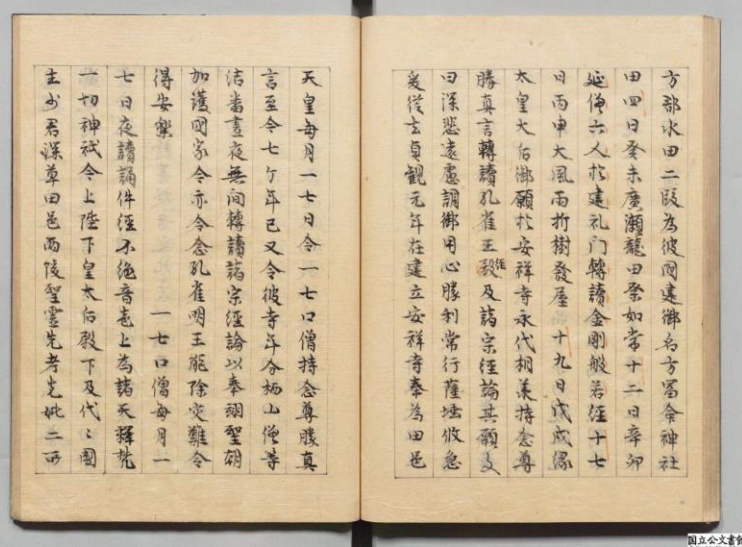 方郡水田二段為彼國建御名方冨命神社
田四日癸未廣瀬龍田祭如常十二日辛卯
延僧六人於建礼门轉讀金剛般若經十七
日丙申大風雨折樹發屋十九日戊戌縁
太皇大后御願於安祥寺永代相羕持念尊
勝真言轉讀孔雀王経及諸宗經論其願文
曰深悲遠慮調御用心勝利常行薩埵攸急
爰從去貞観元年在建立安祥寺奉為田邑
天皇每月一七日令一七口僧持念尊勝真
言至今七ケ年已又令彼寺年分栖山僧等
結番晝夜無间轉讀諸宗經論以奉翊聖朝
加護國家令亦令念孔雀明王能除灾難令
得安樂 一七口僧每月一
七日夜讀誦件經不絶音志上為諸天釋梵
一切神祇今上陛下皇太后殿下及代〻國
主少君深草田邑両陵聖霊先考先妣二所
国立公文書館